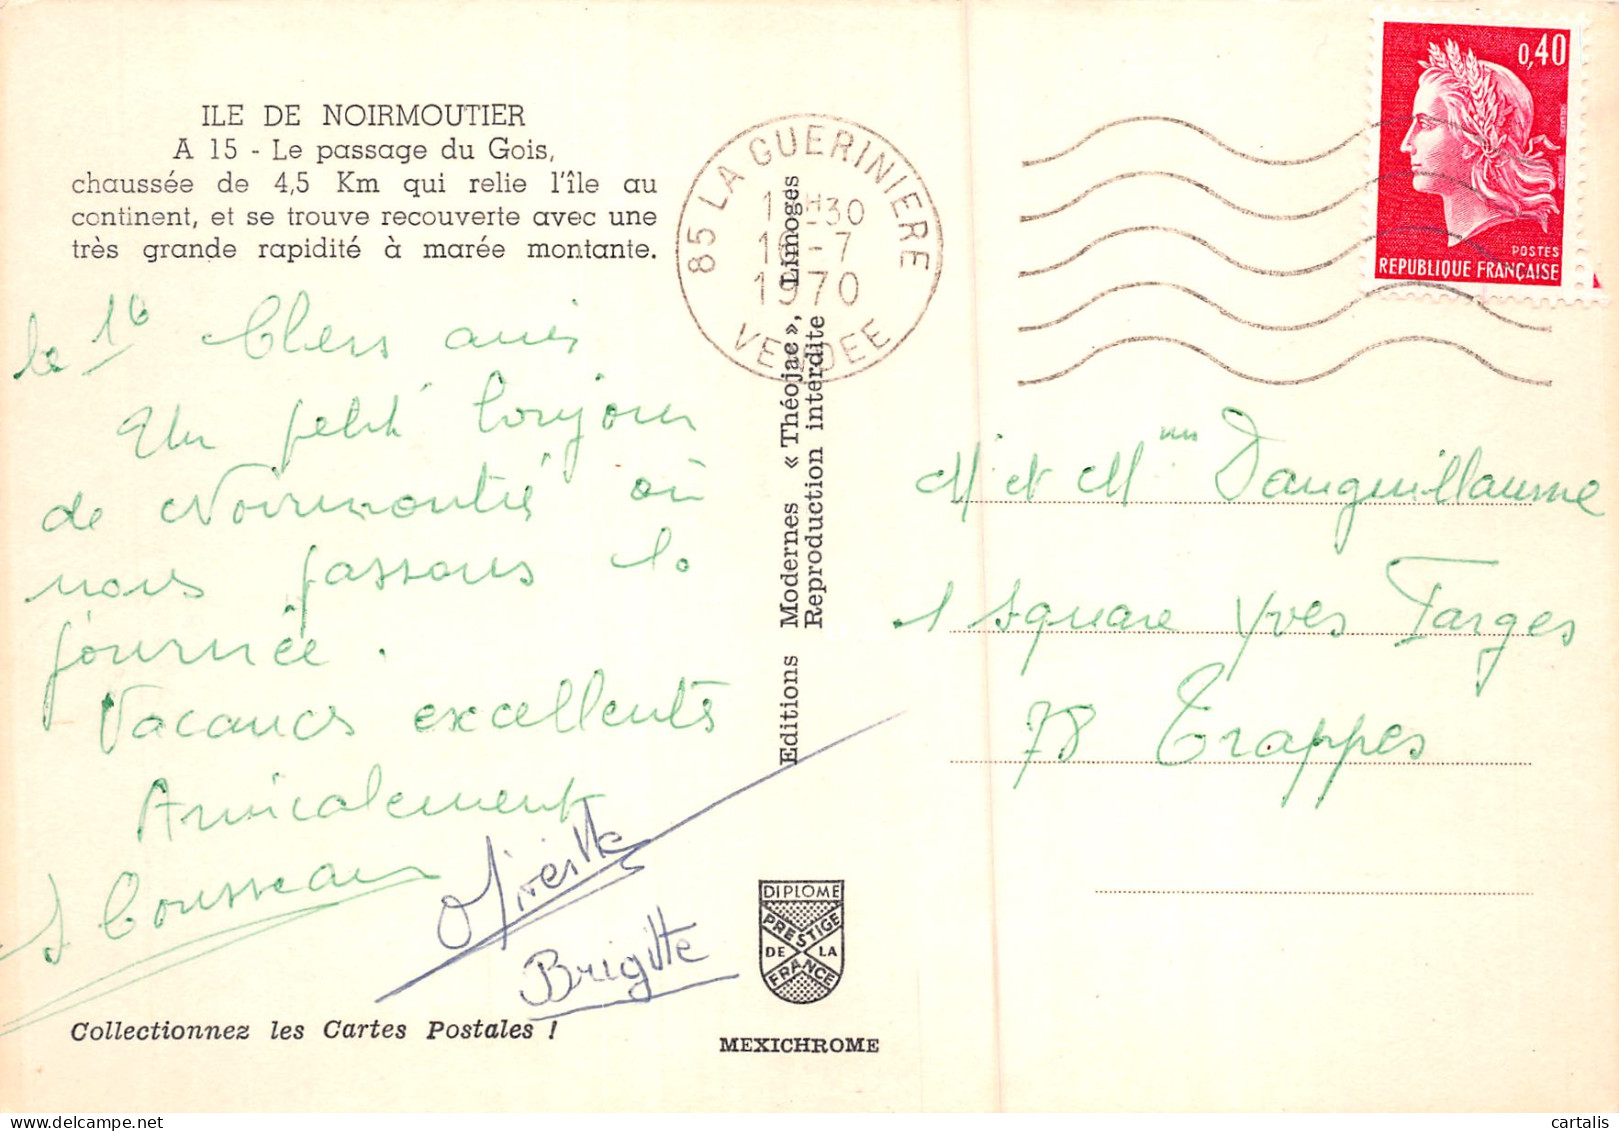 ILE DE NOIRMOUTIER
A 15 - Le passage du Gois,
chaussée de 4,5 Km qui relie l'île au
continent, et se trouve recouverte avec une
très grande rapidité à marée montante.
le 16 Chers amis
Un petit bonjour
de Noirmoutié où
nous passons la
journée.
Vacances excellents
Amicalement
J Cousseau
Mireille
Brigitte
Collectionnez les Cartes Postales !
85 LA GUERINIERE
H 30
16-7
1970
VENDEE
Editions Modernes « Théojac », Limoges
Reproduction interdite
DIPLOME
PRESTIGE
DE LA
FRANCE
MEXICHROME
0,40
POSTES
REPUBLIQUE FRANÇAISE
Mr et Mme Danguillaume
1 square Yves Farges
78 Trappes
cartalis